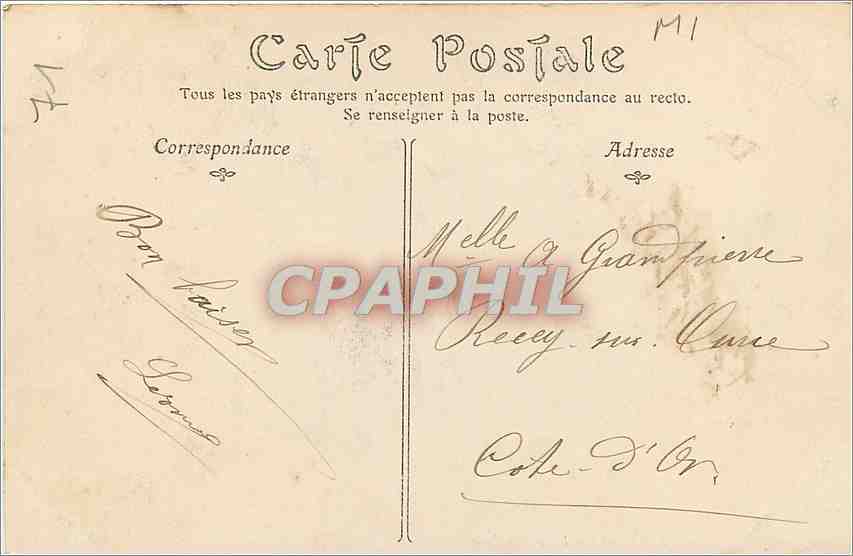 71
M1
Carte Postale
Tous les pays étrangers n'acceptent pas la correspondance au recto.
Se renseigner à la poste.
Correspondance
Adresse
Bon baiser
Melle A Grandpierre
CPAPHIL
Recey-sur-Ource
Cote-d'Or.